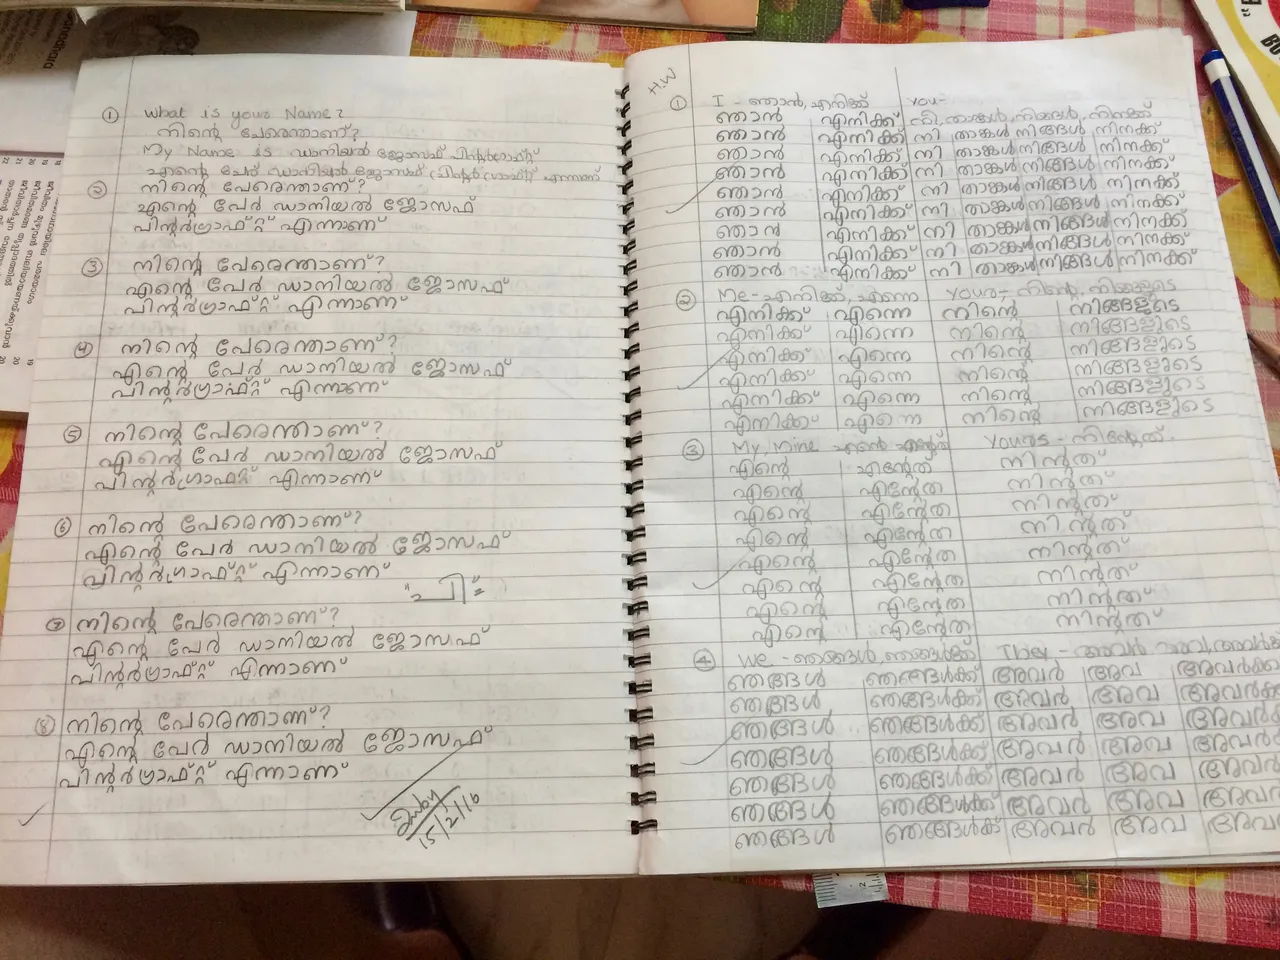 ① What is your Name?
നിന്റെ പേരെന്താണ്?
My Name is ഡാനിയൽ ജോസഫ് പിന്റർഗ്രാഫ്റ്റ്
എന്റെ പേര് ഡാനിയൽ ജോസഫ് പിന്റർഗ്രാഫ്റ്റ് എന്നാണ്
② നിന്റെ പേരെന്താണ്?
എന്റെ പേർ ഡാനിയൽ ജോസഫ്
പിന്റർഗ്രാഫ്റ്റ് എന്നാണ്
③ നിന്റെ പേരെന്താണ്?
എന്റെ പേർ ഡാനിയൽ ജോസഫ്
പിന്റർഗ്രാഫ്റ്റ് എന്നാണ്
④ നിന്റെ പേരെന്താണ്?
എന്റെ പേർ ഡാനിയൽ ജോസഫ്
പിന്റർഗ്രാഫ്റ്റ് എന്നാണ്
⑤ നിന്റെ പേരെന്താണ്?
എന്റെ പേർ ഡാനിയൽ ജോസഫ്
പിന്റർഗ്രാഫ്റ്റ് എന്നാണ്
⑥ നിന്റെ പേരെന്താണ്?
എന്റെ പേർ ഡാനിയൽ ജോസഫ്
പിന്റർഗ്രാഫ്റ്റ് എന്നാണ്
"പി"
⑦ നിന്റെ പേരെന്താണ്?
എന്റെ പേർ ഡാനിയൽ ജോസഫ്
പിന്റർഗ്രാഫ്റ്റ് എന്നാണ്
⑧ നിന്റെ പേരെന്താണ്?
എന്റെ പേർ ഡാനിയൽ ജോസഫ്
പിന്റർഗ്രാഫ്റ്റ് എന്നാണ്
15/2/16
H.W
① I - ഞാൻ, എനിക്ക് you - നീ, താങ്കൾ, നിങ്ങൾ, നിനക്ക്
ഞാൻ എനിക്ക് നി താങ്കൾ നിങ്ങൾ നിനക്ക്
ഞാൻ എനിക്ക് നി താങ്കൾ നിങ്ങൾ നിനക്ക്
ഞാൻ എനിക്ക് നി താങ്കൾ നിങ്ങൾ നിനക്ക്
ഞാൻ എനിക്ക് നി താങ്കൾ നിങ്ങൾ നിനക്ക്
ഞാൻ എനിക്ക് നി താങ്കൾ നിങ്ങൾ നിനക്ക്
ഞാൻ എനിക്ക് നി താങ്കൾ നിങ്ങൾ നിനക്ക്
ഞാൻ എനിക്ക് നി താങ്കൾ നിങ്ങൾ നിനക്ക്
ഞാൻ എനിക്ക് നി താങ്കൾ നിങ്ങൾ നിനക്ക്
ഞാൻ എനിക്ക് നി താങ്കൾ നിങ്ങൾ നിനക്ക്
② Me - എനിക്ക്, എന്നെ your - നിന്റെ, നിങ്ങളുടെ
എനിക്ക് എന്നെ നിന്റെ നിങ്ങളുടെ
എനിക്ക് എന്നെ നിന്റെ നിങ്ങളുടെ
എനിക്ക് എന്നെ നിന്റെ നിങ്ങളുടെ
എനിക്ക് എന്നെ നിന്റെ നിങ്ങളുടെ
എനിക്ക് എന്നെ നിന്റെ നിങ്ങളുടെ
എനിക്ക് എന്നെ നിന്റെ നിങ്ങളുടെ
③ My, Mine എന്റെ yours - നിന്റേത്.
എന്റെ എന്റേത നിന്റത്
എന്റെ എന്റേത നിന്റത്
എന്റെ എന്റേത നിന്റത്
എന്റെ എന്റേത നിന്റത്
എന്റെ എന്റേത നിന്റത്
എന്റെ എന്റേത നിന്റത്
എന്റെ എന്റേത നിന്റത്
എന്റെ എന്റേത നിന്റത്
④ We - ഞങ്ങൾ, ഞങ്ങൾക്ക് They - അവർ അവ, അവർക്ക
ഞങ്ങൾ ഞങ്ങൾക്ക് അവർ അവ അവർക്ക
ഞങ്ങൾ ഞങ്ങൾക്ക് അവർ അവ അവർക്ക
ഞങ്ങൾ ഞങ്ങൾക്ക് അവർ അവ അവർക്ക
ഞങ്ങൾ ഞങ്ങൾക്ക് അവർ അവ അവർക്ക
ഞങ്ങൾ ഞങ്ങൾക്ക് അവർ അവ അവർ
ഞങ്ങൾ ഞങ്ങൾക്ക് അവർ അവ അവർ
ഞങ്ങൾ ഞങ്ങൾക്ക് അവർ അവ അവ